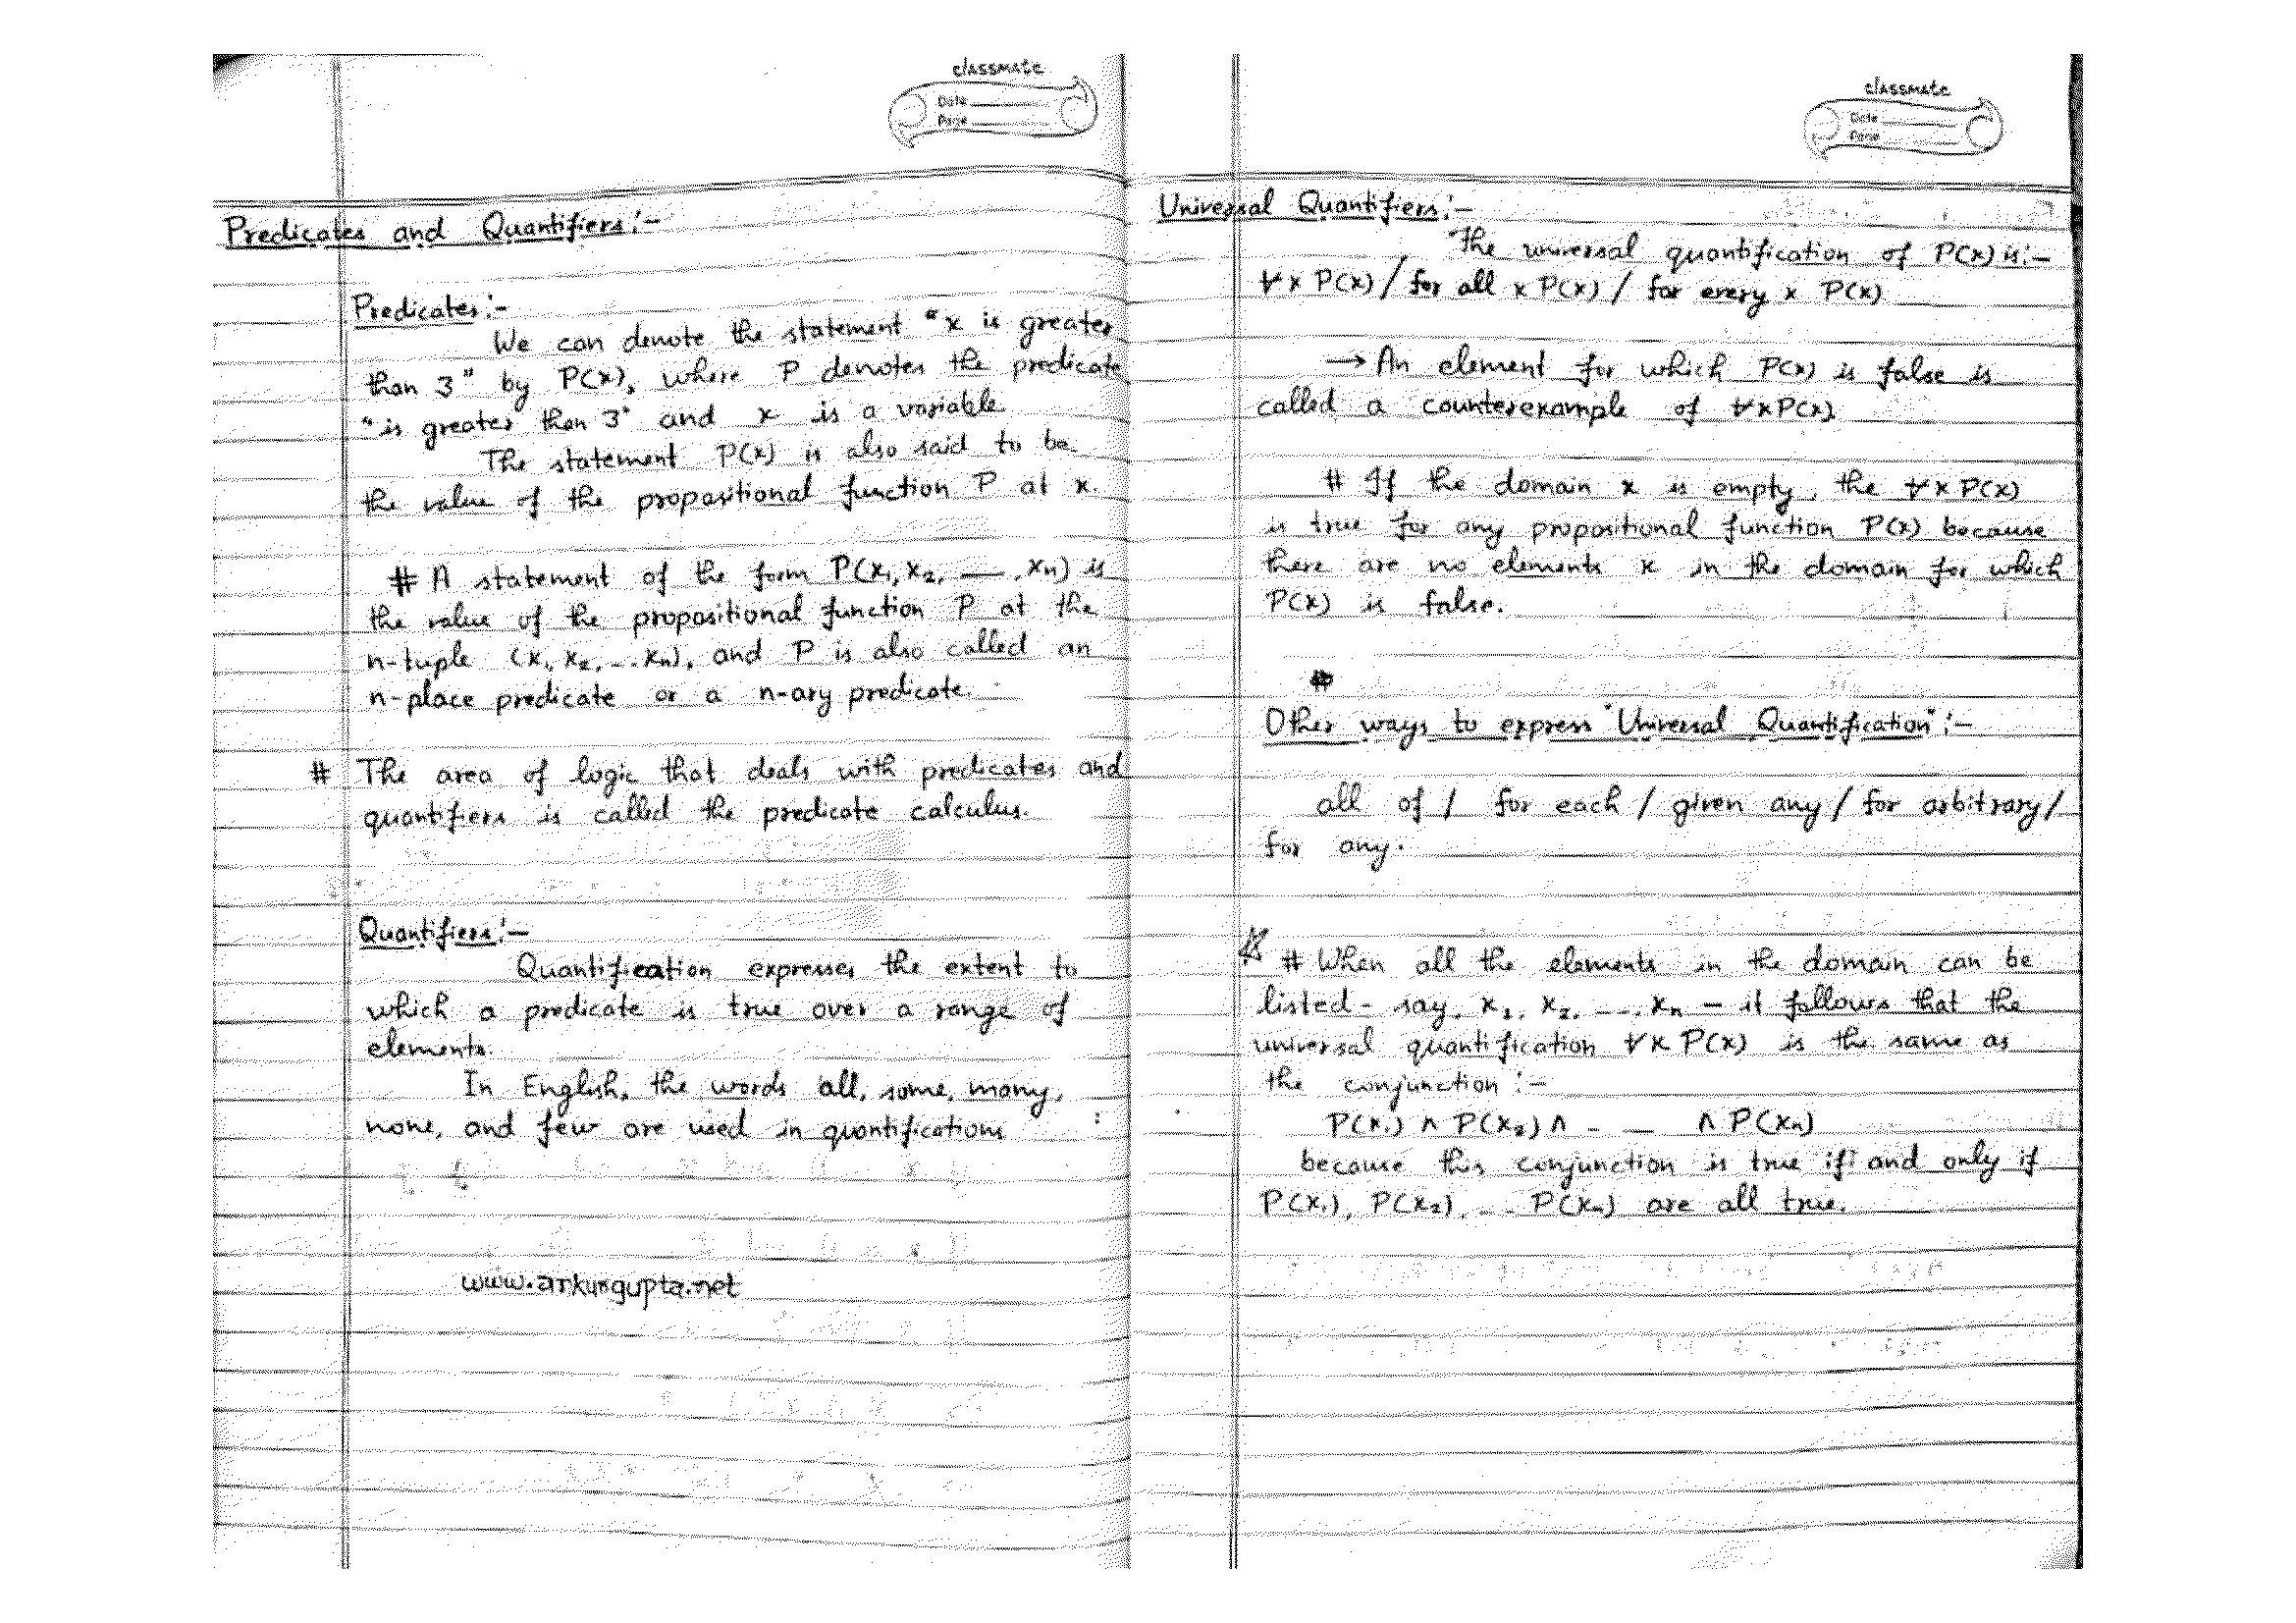 classmate
Date
Page
Predicates and Quantifiers:-
Predicates:-
We can denote the statement "x is greater
than 3" by P(x), where P denotes the predicate
"is greater than 3" and x is a variable.
The statement P(x) is also said to be
the value of the propositional function P at x.
# A statement of the form P(x₁, x₂, —, xn) is
the value of the propositional function P at the
n-tuple (x₁, x₂, ... xn), and P is also called an
n-place predicate or a n-ary predicate.
# The area of logic that deals with predicates and
quantifiers is called the predicate calculus.
Quantifiers:-
Quantification expresses the extent to
which a predicate is true over a range of
elements.
In English, the words all, some, many,
none, and few are used in quantifications
www.ankurgupta.net
classmate
Date
Page
Universal Quantifiers:-
The universal quantification of P(x) is:-
∀x P(x) / for all x P(x) / for every x P(x)
→ An element for which P(x) is false is
called a counterexample of ∀xP(x)
# If the domain x is empty, the ∀x P(x)
is true for any propositional function P(x) because
there are no elements x in the domain for which
P(x) is false.
#
Other ways to express "Universal Quantification":-
all of / for each / given any / for arbitrary /
for any.
# When all the elements in the domain can be
listed - say, x₁, x₂, ..., xn - it follows that the
universal quantification ∀x P(x) is the same as
the conjunction:-
P(x₁) ∧ P(x₂) ∧ - — ∧ P(xn)
because this conjunction is true if and only if
P(x₁), P(x₂), ... P(xn) are all true.